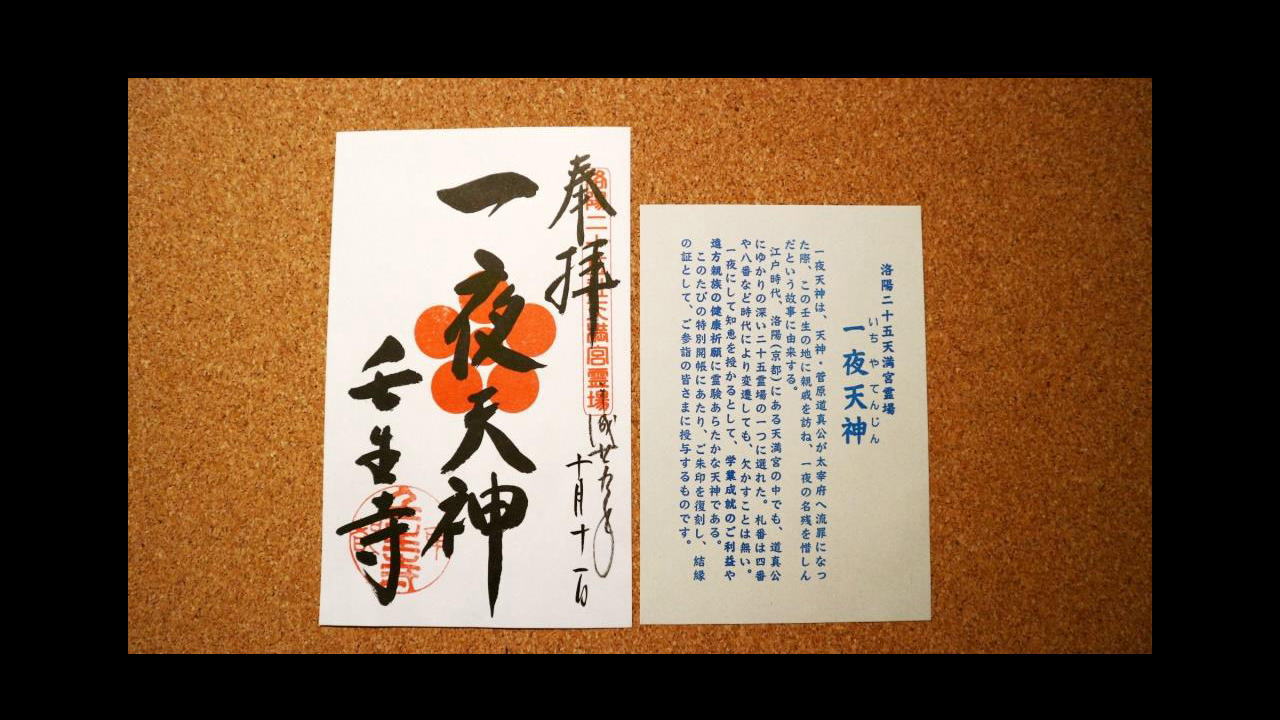 奉拝
洛陽二十五天満宮霊場
平成廿九年
十月十一日
一夜天神
壬生寺
洛陽二十五天満宮霊場
いちやてんじん
一夜天神
一夜天神は、天神・菅原道真公が太宰府へ流罪になっ
た際、この壬生の地に親戚を訪ね、一夜の名残を惜しん
だという故事に由来する。
江戸時代、洛陽(京都)にある天満宮の中でも、道真公
にゆかりの深い二十五霊場の一つに選れた。札番は四番
や八番など時代により変遷しても、欠かすことは無い。
一夜にして知恵を授かるとして、学業成就のご利益や
遠方親族の健康祈願に霊験あらたかな天神である。
このたびの特別開帳にあたり、ご朱印を復刻し、結縁
の証として、ご参詣の皆さまに授与するものです。